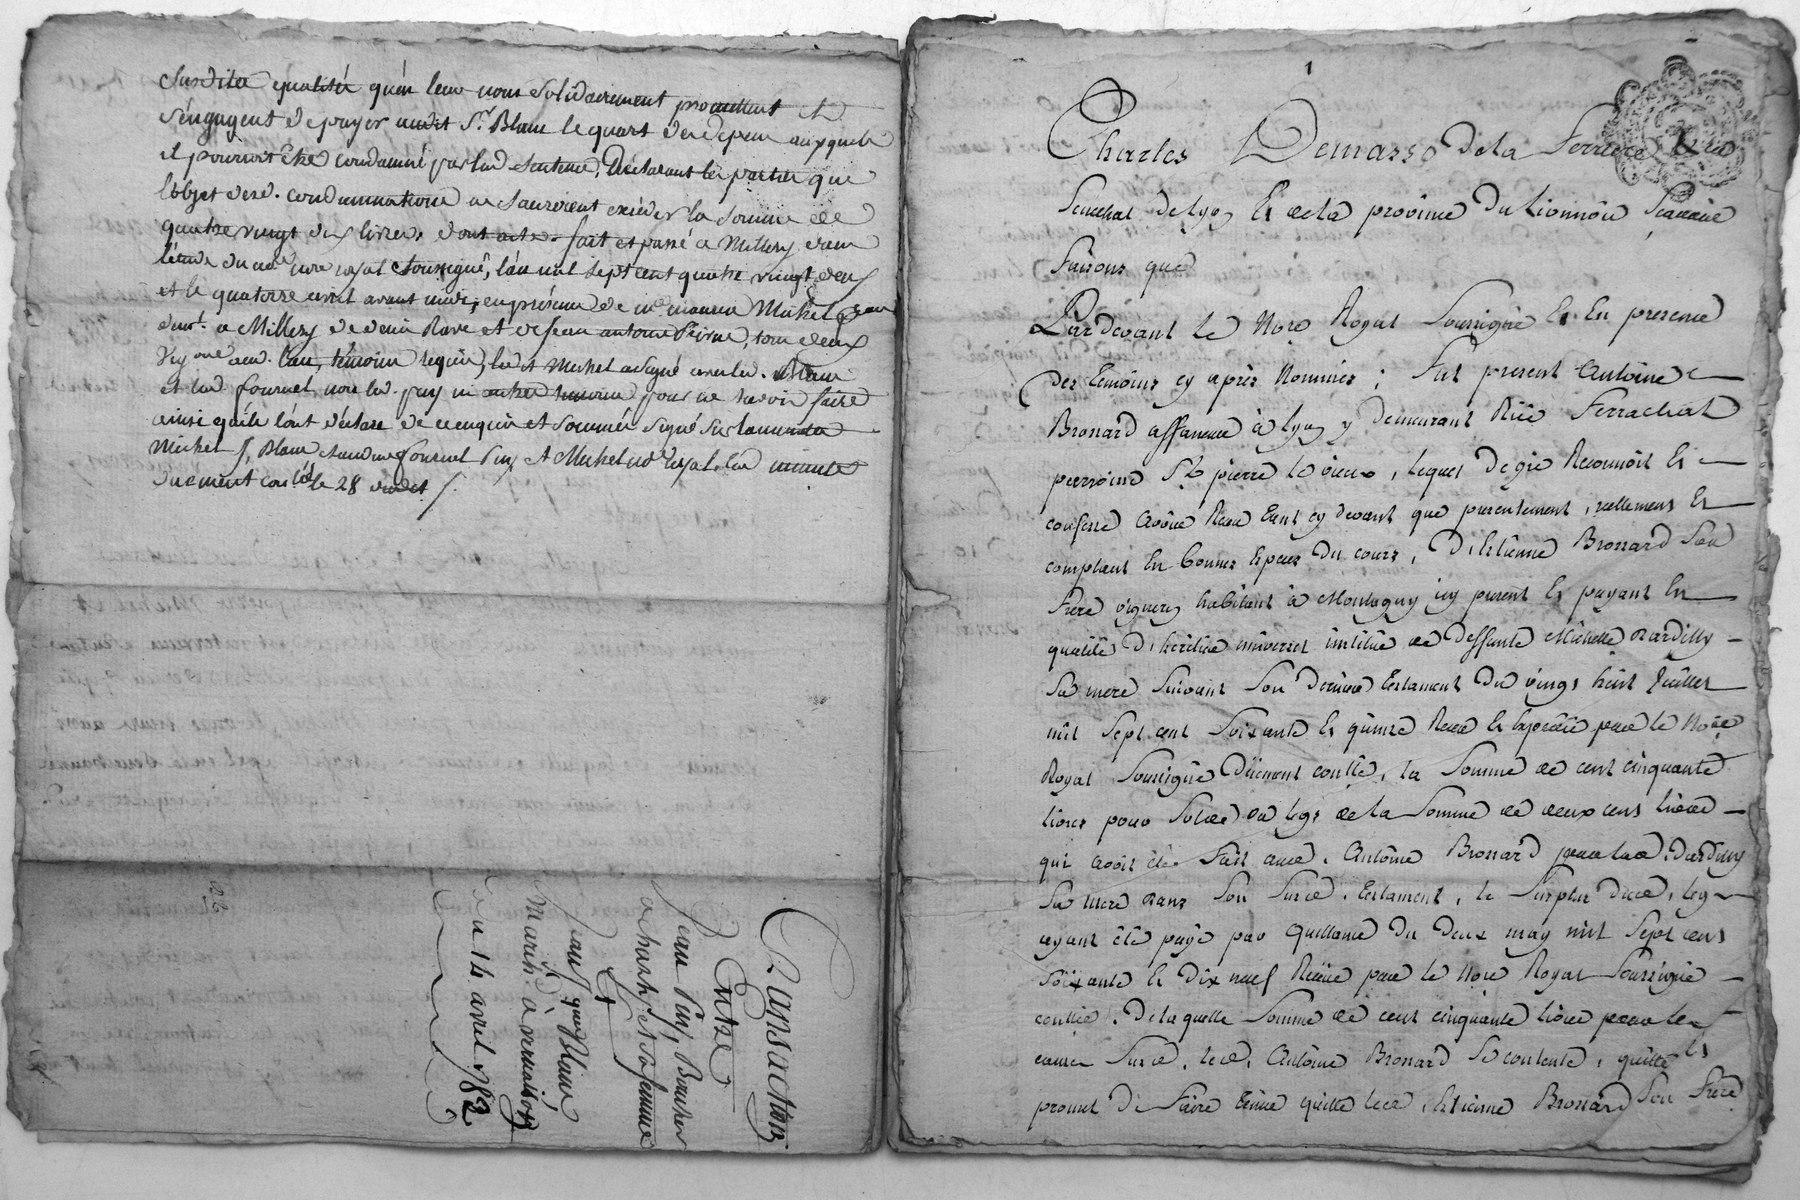 Susdites qualités qu'en leur nom Solidairement promettent et
S'engagent de payer audit Sr. Blanc le quart des depens auxquels
il pourroit être condamné par lad Sentence, Déclarant les parties que
l'objet desd. condamnations ne Sauroient excéder la Somme de
quatre vingt dix livres, dont acte. fait et passé a Millery dans
l'étude du nore royal Soussigné, l'an mil Sept cent quatre vingt deux
et le quatorze avril avant midi, en présence de Michel
demt. a Millery de et de Jean antoine tous deux
Vigons aud. lieu, témoins requis, led Michel a Signé avec led. Blanc
et lad fournel, non led. puy ni autre témoin pour ne Savoir faire
ainsi qu'ils l'ont déclaré de ce enquis et Sommés Signé Sur la minute
Michel J. Blanc Claudine fournel Puy et Michel nore royal. lad minute
Duement conlée le 28 dudit /.
Transaction
Entre
Jean Puy, Boucher
a charly et sa femme
Et
Jean Blanc,
March. à vernaison
Du 14 avril 1782
1
Charles Demasso de la Ferriere
Senechal de Lyon Et de la province du Lionnois Scavoir
Faisons que
Pardevant le Nore Royal Soussigné Et En presence
des temoins cy après Nommés ; Fut present Antoine
Brossard affaneur à Lyon y demeurant Rüe Ferrachat
parroisse St. pierre le vieux, lequel de gré Reconnoit Et
confesse avoir Receu tant cy devant que presentement, reellement Et
comptant En bonnes Especes du cours, D'Estienne Brossard Son
Frère vigneron habitant à Montagny icy present Et payant En
qualité d'héritier universel institué de deffunte Michelle Dardilly
Sa mere Suivant Son dernier testament du vingt huit Juillet
mil Sept cent Soixante Et quinze Receu Et Expedié par le Nore
Royal Soussigné Düement conllé, la Somme de cent cinquante
livres pour Solde du legs de la Somme de deux cens livres
qui avoit été Fait aud. Antoine Brossard par lad. Dardilly
Sa mere dans Son Susd. testament, le Surplus dud. legs
ayant été payé par quittance du deux may mil Sept cens
Soixante Et dix neuf Receüe par le Nore Royal Soussigné
conllée. De laquelle Somme de cent cinquante livres pour les
causes Susd. led. Antoine Brossard Se contente, quitte Et
promet de Faire tenir quitte led. Estienne Brossard Son Frère